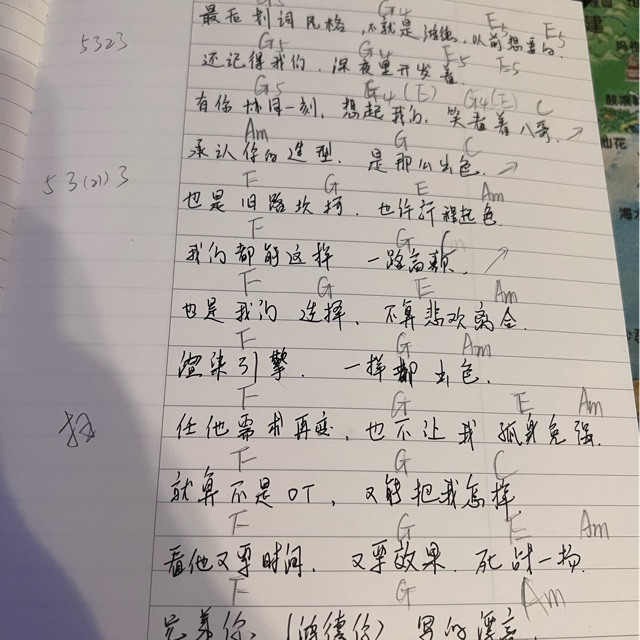 G5 G4 E5 E5
最后刻词风格，不就是鸿德，以前想要的.
5323
G5 G4 E5 E5
还记得我们，深夜里开发着.
G5 G4(E) G4(E) C
有你协同一刻，想起我们，笑看着八哥. ↗
Am G C
承认你的造型，是那么出色. ↗
53(21)3
F G E Am
也是旧路坎坷，也许行程起色.
F G C
我们都能这样 一路高歌. ↗
F G E Am
也是我们选择，不算悲欢离合.
F G Am
渲染引擎，一样都出色.
F G E Am
扫
任他需求再变，也不让我孤身免强.
F G C
就算不是OT，又能把我怎样
F G E Am
看他又要时间，又要效果，死战一场.
F G Am
兄弟你，(鸿德你) 写的漂亮